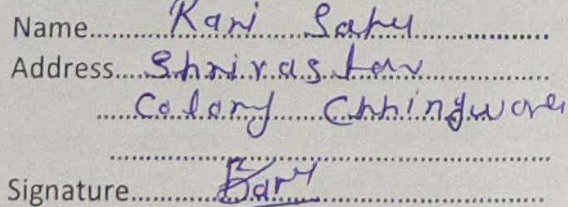 Name Kari Sahu
Address Shrivastav
Colony Chhingwara
Signature